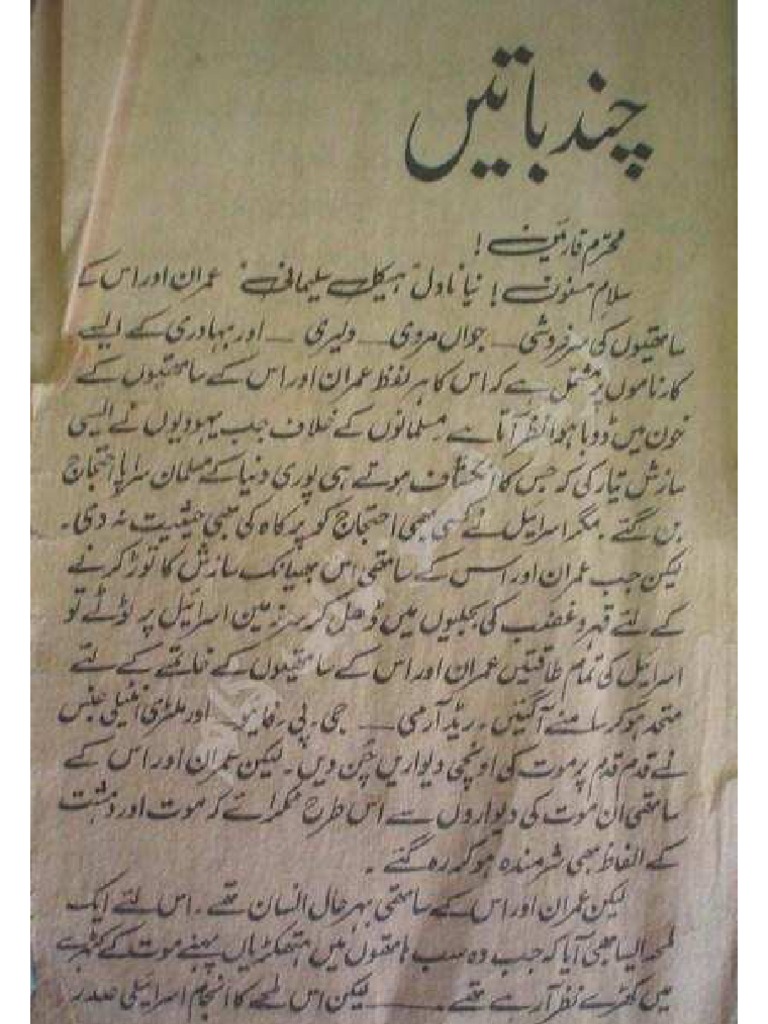 چند باتیں
محترم قارئین !
سلام مسنون ! نیا ناول "ہیکل سلیمانی" عمران اور اس کے
ساتھیوں کی سرفروشی ــ جواں مردی ــ دلیری ــ اور بہادری کے ایسے
کارناموں پر مشتمل ہے کہ اس کا ہر لفظ عمران اور اس کے ساتھیوں کے
خون میں ڈوبا ہوا نظر آتا ہے مسلمانوں کے خلاف جب یہودیوں نے ایسی
سازش تیار کی کہ جس کا انکشاف ہوتے ہی پوری دنیا کے مسلمان سراپا احتجاج
بن گئے . مگر اسرائیل نے کسی بھی احتجاج کو پرکاہ کی سی حیثیت نہ دی ۔
لیکن جب عمران اور اس کے ساتھی اس بھیانک سازش کا توڑ کرنے
کے لئے قہر و غضب کی بجلیوں میں ڈھل کر سرزمین اسرائیل پر ٹوٹے تو
اسرائیل کی تمام طاقتیں عمران اور اس کے ساتھیوں کے خاتمے کے لئے
متحد ہو کر سامنے آگئیں ۔ ریڈ آرمی ــ جی ۔ پی ۔ فائیو ــ اور ملٹری انٹیلی جنس
نے قدم قدم پر موت کی اونچی دیواریں چُن دیں ۔ لیکن عمران اور اس کے
ساتھی ان موت کی دیواروں سے اس طرح ٹکرائے کہ موت اور دہشت
کے الفاظ بھی شرمندہ ہو کر رہ گئے ۔
لیکن عمران اور اس کے ساتھی بہرحال انسان تھے ۔ اس لئے ایک
لمحہ ایسا بھی آیا کہ جب وہ سب ہاتھوں میں ہتھکڑیاں پہنے موت کے کٹہرے
میں کھڑے نظر آ رہے تھے ــــ لیکن اس لمحے کا انجام اسرائیلی صدر